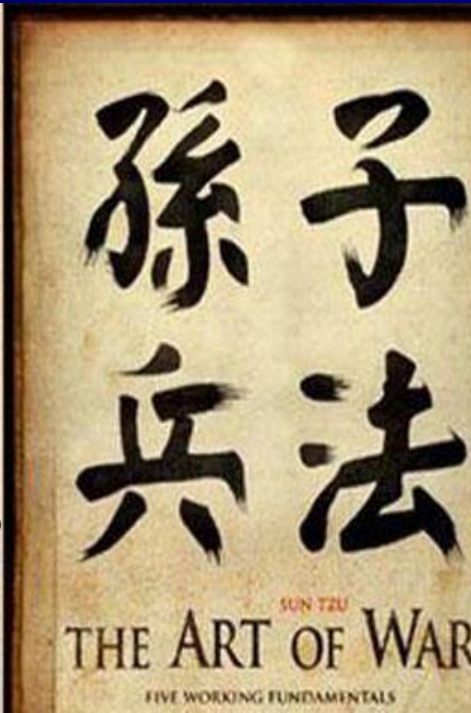 孫子
兵法
SUN TZU
THE ART OF WAR
FIVE WORKING FUNDAMENTALS